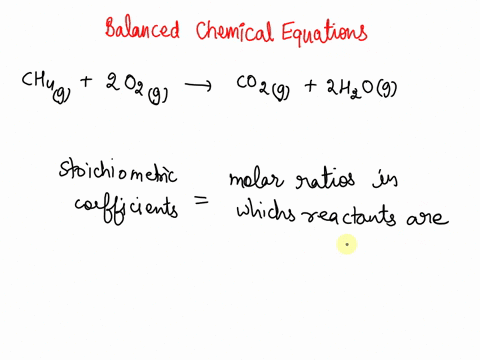 Balanced Chemical Equations
CH4(g) + 2O2(g) → CO2(g) + 2H2O(g)
stoichiometric coefficients = molar ratios in
whichs reactants are